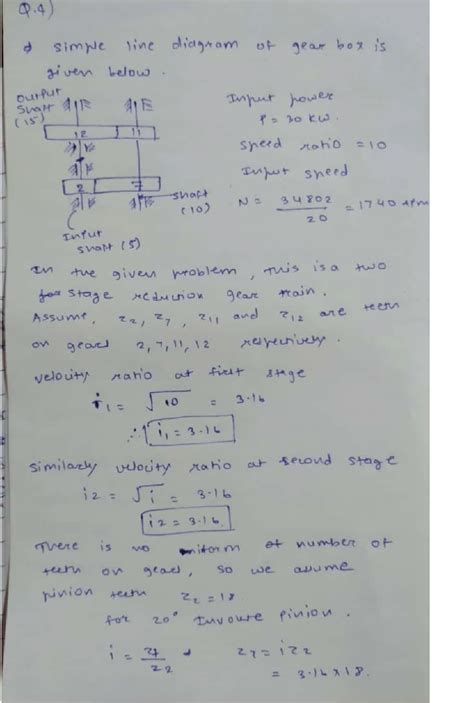 Q.4)
A simple line diagram of gear box is
given below.
output
shaft
(15)
12
11
2
7
shaft
(10)
Input
shaft (5)
Input power
P = 30 kw.
speed ratio = 10
Input speed
N = 34802 / 20 = 1740 rpm
In the given problem, this is a two
stage reduction gear train.
Assume, z2, z7, z11 and z12 are teeth
on gears 2, 7, 11, 12 respectively.
velocity ratio at first stage
i1 = √10 = 3.16
∴ i1 = 3.16
Similarly velocity ratio at second stage
i2 = √i = 3.16
i2 = 3.16
There is no uniform of number of
teeth on gear, so we assume
pinion teeth z2 = 18
for 20° Involute pinion.
i = z7 / z2
z7 = i z2
= 3.16 x 18.